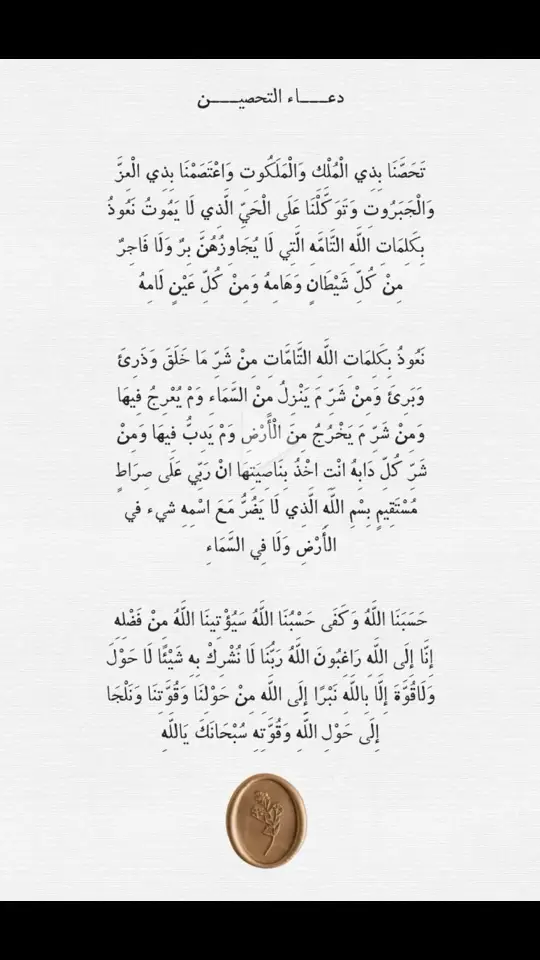 دعـــاء التحصيـــن
تَحَصَّنَا بِذِي الْمُلْكِ وَالْمَلَكُوتِ وَاعْتَصَمْنَا بِذِي الْعِزَّ
وَالْجَبَرُوتِ وَتَوَكَّلْنَا عَلَى الْحَيِّ الَّذِي لَا يَمُوتُ نَعُوذُ
بِكَلِمَاتِ اللَّهِ التَّامَّهِ الَّتِي لَا يُجَاوِزُهُنَّ بِرٌ وَلَا فَاجِرٌ
مِنْ كُلِّ شَيْطَانٍ وَهَامِهُ وَمِنْ كُلِّ عَيْنٍ لَامِهُ
نَعُوذُ بِكَلِمَاتِ اللَّهِ التَّامَّاتِ مِنْ شَرِّ مَا خَلَقَ وَذَرِئَ
وَبَرِئَ وَمِنْ شَرِّ مَ يَنْزِلُ مِنْ السَّمَاءِ وَمْ يُعْرِجُ فِيهَا
وَمِنْ شَرِّ مَ يَخْرُجُ مِنَ الْأَرْضِ وَمْ يَدِبُّ فِيهَا وَمِنْ
شَرِّ كُلِّ دَابِهُ انْت اخْذُ بِنَاصِيَتِهَا انْ رَبِّي عَلَى صِرَاطٍ
مُسْتَقِيمٍ بِسْمِ اللَّهِ الَّذِي لَا يَضُرُّ مَعَ اسْمِهِ شيء في
الأَرْضِ وَلَا فِي السَّمَاءِ
حَسَبَنَا اللَّهُ وَكَفَى حَسْبُنَا اللَّهُ سَيُؤْتِينَا اللَّهُ مِنْ فَضْلِهِ
إِنَّا إِلَى اللَّهِ رَاغِبُونَ اللَّهُ رَبُّنَا لَا نُشْرِكْ بِهِ شَيْئًا لَا حَوْلَ
وَلَاقُوَّةَ إِلَّا بِاللَّهِ نَبْرًا إِلَى اللَّهِ مِنْ حَوْلِنَا وَقُوَّتِنَا وَنَلْجَا
إِلَى حَوْلِ اللَّهِ وَقُوَّتِهِ سُبْحَانَكَ يَاللَّهِ